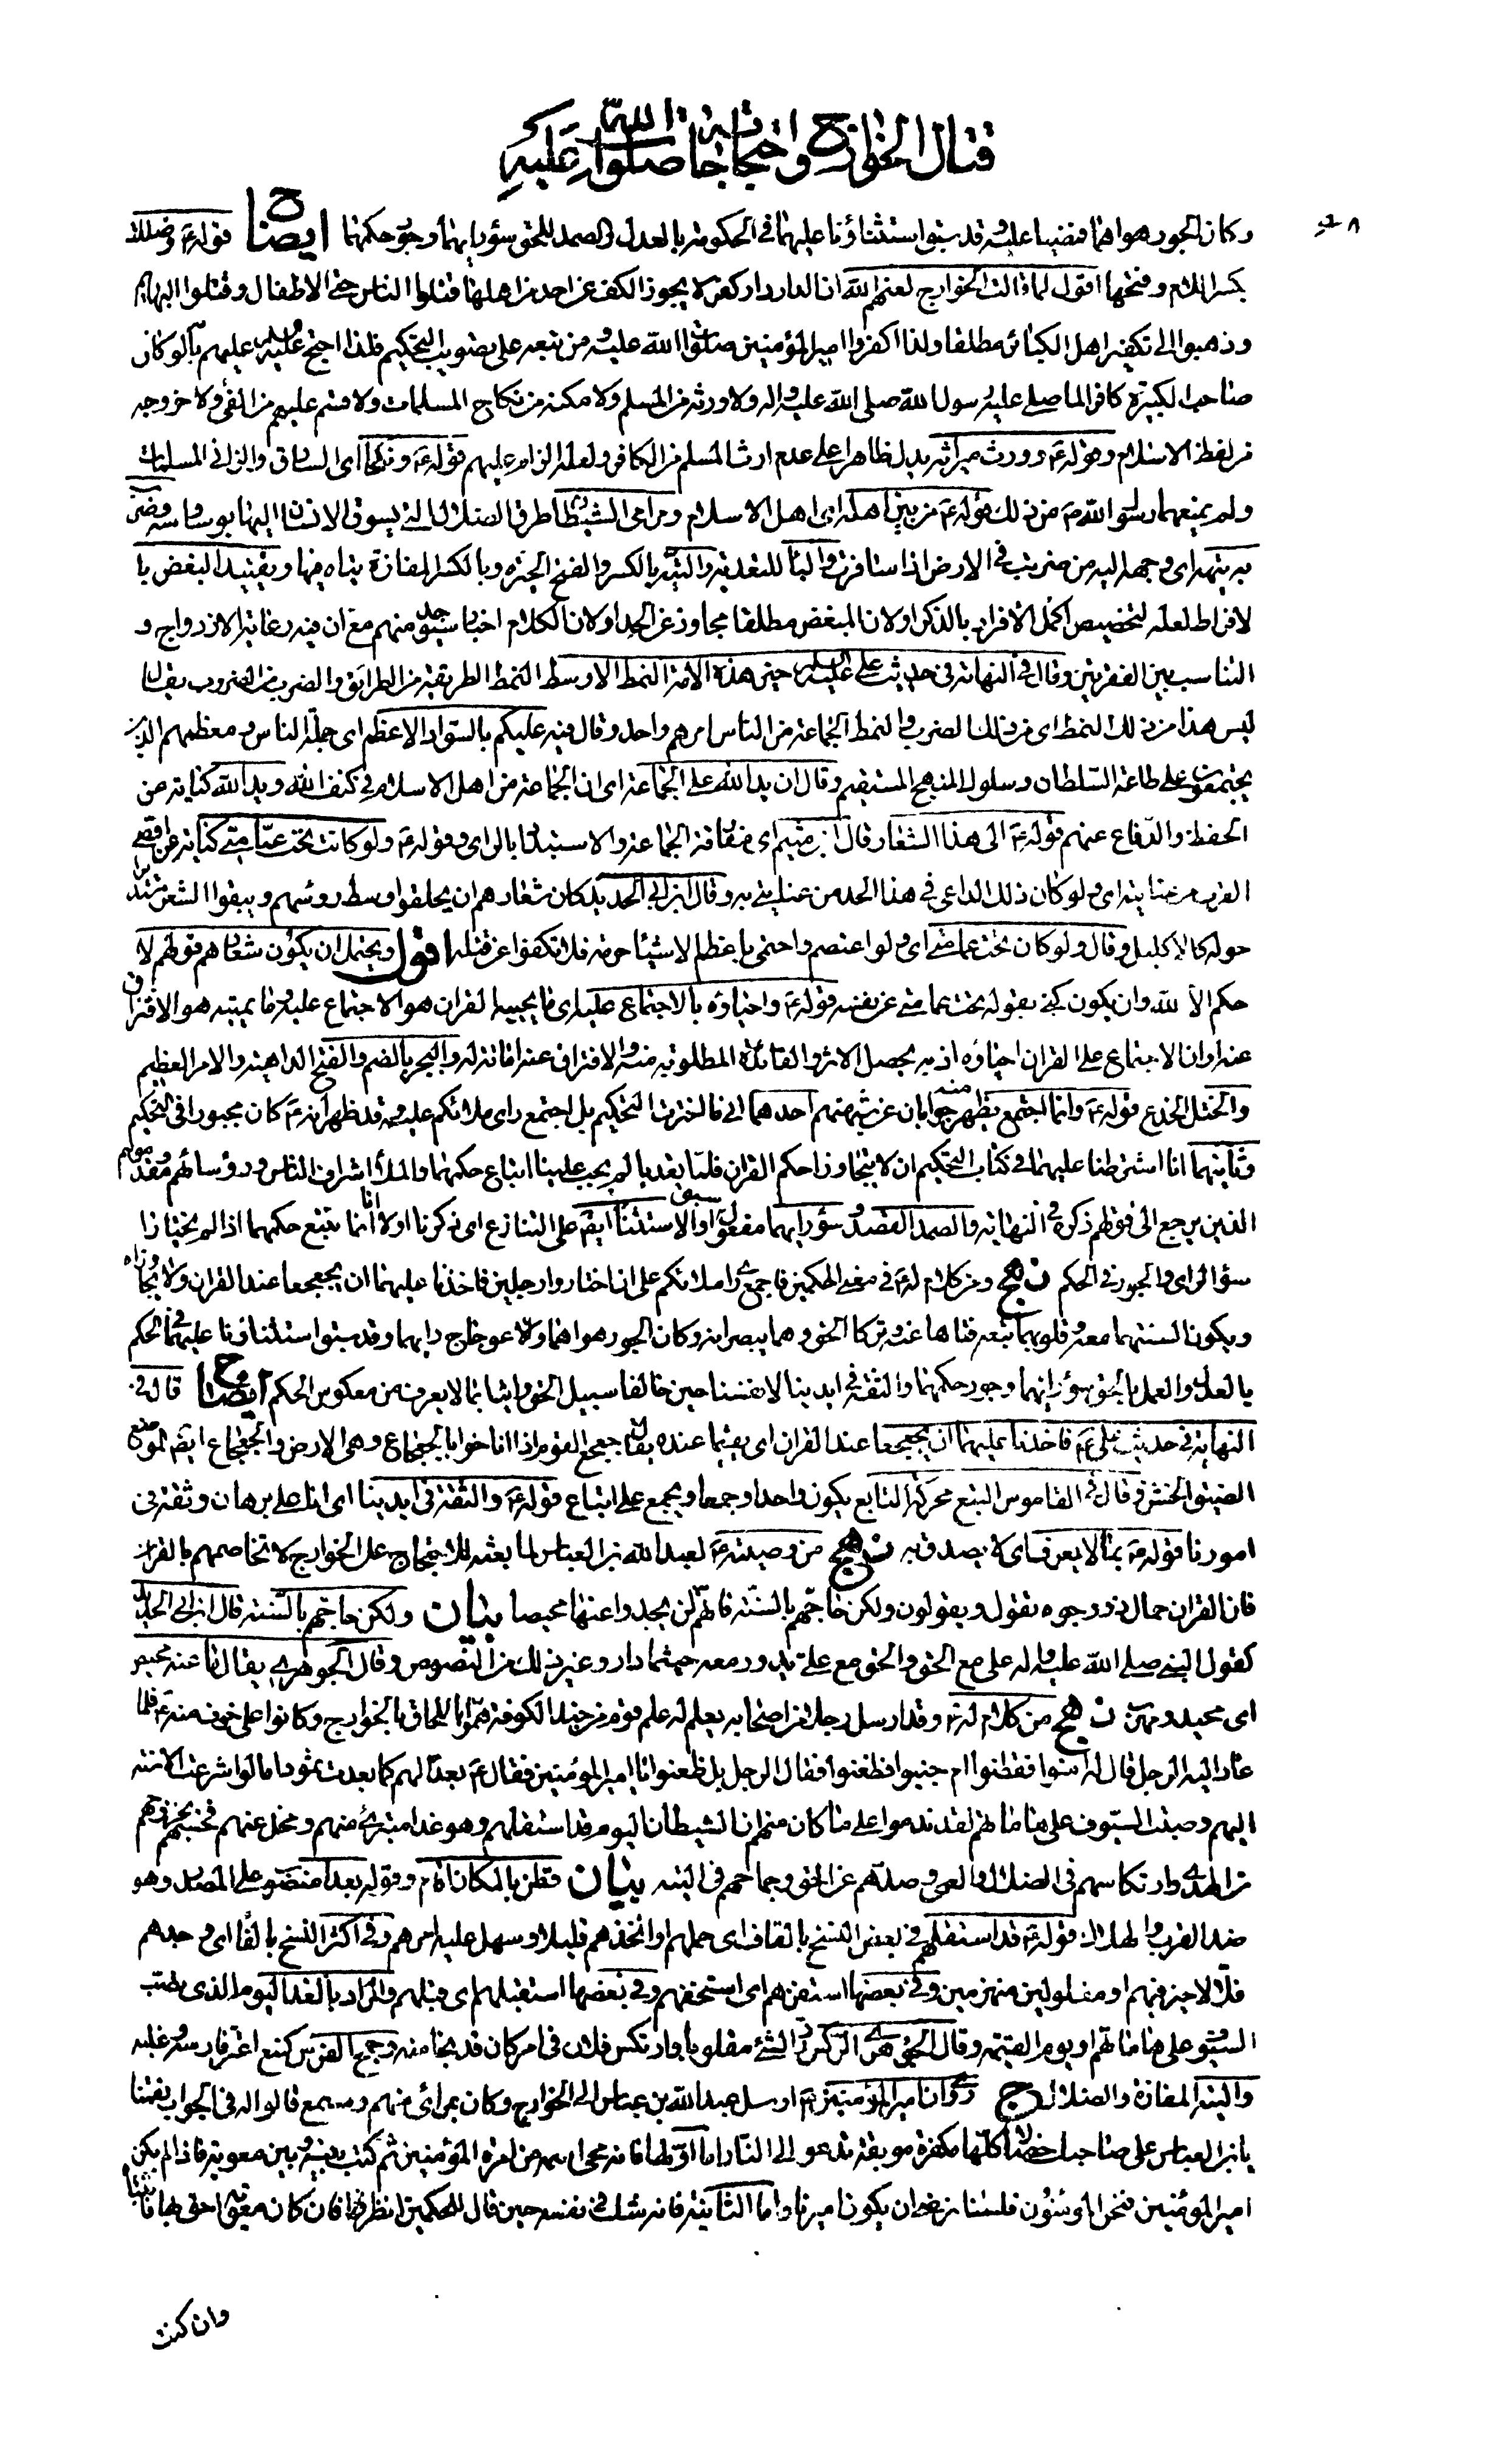 قتال الخوارج واحتجاجاته صلوات الله عليه
وكان الجور هواهما فمضيا عليه وقد سبق استثناؤنا عليهما في الحكومة بالعدل والصمد للحق سوء رايهما وجور حكمهما ايضاح قوله ع وضللت
بكسر اللام وفتحها اقول لما قالت الخوارج لعنهم الله ان الدار دار كفر لا يجوز الكف عن احد من اهلها قتلوا الناس حتى الاطفال وقتلوا البهايم
وذهبوا الى تكفير اهل الكبائر مطلقا ولذا اكفروا امير المؤمنين صلوات الله عليه ومن تبعه على تصويب التحكيم فلذا احتج عليه السلام عليهم بانه لو كان
صاحب الكبيرة كافرا لما صلى عليه رسول الله صلى الله عليه واله ولا ورثه من المسلم ولا مكنه من نكاح المسلمات ولا قسم عليهم من الفئ ولا خروجه
من لفظ الاسلام وقوله ع وورث ميراثه يدل ظاهرا على عدم ارث المسلم من الكافر ولعله الزام عليهم قوله ع ونكحا اي السارق والزاني المسلمات
ولم يمنعهما رسول الله ص من ذلك قوله ع من بين اهله اي اهل الاسلام ومرامي الشيطان طرق الضلال التي يسوق الانسان اليها بوساوسه وضرب
به تيهه اي وجهه اليه من ضربت في الارض اذا سافرت والباء للتعدية والتيه بالكسر والفتح الحيرة وبالكسر المفازة يتاه فيها وتقييد البغض با
لافراط لعله لتخصيص اكمل الافراد بالذكر او لان المبغض مطلقا مجاوز عن الحد او لان الكلام اخبار سيوجد منهم مع ان فيه رعاية الازدواج و
التناسب بين الفقرتين وقال في النهاية في حديث علي عليه السلام خير هذه الامة النمط الاوسط النمط الطريقة من الطرائق والضرب من الضروب يقال
ليس هذا من ذلك النمط اي من ذلك الضرب والنمط الجماعة من الناس امرهم واحد وقال فيه عليكم بالسواد الاعظم اي جملة الناس ومعظمهم الذين
يجتمعون على طاعة السلطان وسلوك المنهج المستقيم وقال ان يد الله على الجماعة اي ان الجماعة من اهل الاسلام في كنف الله ويد الله كناية عن
الحفظ والدفاع عنهم قوله ع الى هذا الشعار قال ابن ميثم اي مفارقة الجماعة والاستبداد بالراى وقوله ع ولو كانت تحت عمامتي كناية عن اقصى
القرب من عنايته اي ولو كان ذلك الداعي في هذا الحد من عنايتي به وقال ابن ابي الحديد كان شعارهم ان يحلقوا وسط رؤسهم ويبقوا الشعر مستديرا
حوله كالاكليل وقال ولو كان تحت عمامتي اي ولو اعتصم واحتمى باعظم الاشياء حرمة فلا تكفوا عن قتله اقول ويحتمل ان يكون شعارهم قولهم لا
حكم الا لله وان يكون كنى بقوله تحت عمامتي عن نفسه قوله ع واحياؤه بالاجتماع عليه اي ما يحييه القران هو الاجتماع عليه وما يميته هو الافتراق
عنه او ان الاجتماع على القران احياؤه اذ به يحصل الاثر والفائدة المطلوبة منه والافتراق عنه اماتة له والبجر بالضم والفتح الداهية والامر العظيم
والختل الخدع قوله ع وانما اجتمع يظهر منه جوابان عن شبهتهم احدهما اني ما اخترت التحكيم بل اجتمع راى ملائكم عليه وقد ظهر انه ع كان مجبورا في التحكيم
وثانيهما انا اشترطنا عليهما في كتاب التحكيم ان لا يتجاوزا حكم القران فلما تعديا لم يجب علينا اتباع حكمهما والملأ اشراف الناس ورؤسائهم ومقدموهم
الذين يرجع الى قولهم ذكره في النهاية والصمد القصد وسوء رايهما مفعول سبق او الاستثناء ايضا على التنازع اي ذكرنا اولا انا انما نتبع حكمهما اذا لم يختارا
سوء الراى والجور في الحكم نهج ومن كلام له ع في معنى الحكمين فاجمع راى ملائكم على ان اختاروا رجلين فاخذنا عليهما ان يجعجعا عند القران ولا يجاوزاه
ويكون السنتهما معه وقلوبهما تبعه فتاها عنه وتركا الحق وهما يبصرانه وكان الجور هواهما والاعوجاج رايهما وقد سبق استثناؤنا عليهما في الحكم
بالعدل والعمل بالحق سوء رايهما وجور حكمهما والثقة في ايدينا لانفسنا حين خالفا سبيل الحق واتيا بما لا يعرف من معكوس الحكم ايضاح قال في
النهاية في حديث علي ع فاخذنا عليهما ان يجعجعا عند القران اي يقيما عنده يقال جعجع القوم اذا اناخوا بالجعجاع وهي الارض والجعجاع ايضا الموضع
الضيق الخشن وقال في القاموس التبع محركة التابع يكون واحدا وجمعا ويجمع على اتباع قوله ع والثقة في ايدينا اي انا على برهان وثقة في
امورنا قوله ع بما لا يعرف اي لا يصدق به نهج من وصيته ع لعبد الله بن العباس لما بعثه للاحتجاج على الخوارج لا تخاصمهم بالقران
فان القران حمال ذو وجوه تقول ويقولون ولكن حاجهم بالسنة فانهم لن يجدوا عنها محيصا بيان ولكن حاجهم بالسنة قال ابن ابي الحديد
كقول النبي صلى الله عليه واله علي مع الحق والحق مع علي يدور معه حيثما دار وغير ذلك من النصوص وقال الجوهري يقال ما عنه محيص
اي محيد ومهرب نهج من كلام له ع وقد ارسل رجلا من اصحابه يعلم له علم قوم من جند الكوفة هموا باللحاق بالخوارج وكانوا على خوف منه ع فلما
عاد اليه الرجل قال له امنوا فقطنوا ام جبنوا فظعنوا فقال الرجل بل ظعنوا يا امير المؤمنين فقال ع بعدا لهم كما بعدت ثمود اما لو اشرعت الاسنة
اليهم وصبت السيوف على هاماتهم لقد ندموا على ما كان منهم ان الشيطان اليوم قد استفلهم وهو غدا متبرئ منهم ومخل عنهم فحسبهم بخروجهم
من الهدى وارتكاسهم في الضلال والعمى وصدهم عن الحق وجماحهم في التيه بيان قطن بالمكان اقام وقوله بعدا منصوب على المصدر وهو
ضد القرب والهلاك قوله ع قد استفلهم في بعض النسخ بالقاف اي حملهم او اتخذهم قليلا وسهل عليه امرهم وفي اكثر النسخ بالفاء اي وجدهم
فلا لا خير فيهم او مفلولين منهزمين وفي بعضها استفزهم اي استخفهم وفي بعضها استقبلهم اي قبلهم والمراد بالغد اليوم الذي تصب
السيوف على هاماتهم او يوم القيمة وقال الجوهري الركس رد الشئ مقلوبا وارتكس فلان في امر كان قد نجا منه وجمح الفرس كمنع اعتز فارسه وغلبه
والتيه المفازة والضلال ج روي ان امير المؤمنين ع ارسل عبد الله بن عباس الى الخوارج وكان بمرأى منهم ومسمع قالوا له في الجواب نقمنا
يا بن العباس على صاحبك خصالا كلها مكفرة موبقة تدعو الى النار اما اولها فانه محى اسمه من امرة المؤمنين ثم كتب بينه وبين معوية فاذا لم يكن
امير المؤمنين فنحن المؤمنون فلسنا نرضى ان يكون اميرنا واما الثانية فانه شك في نفسه حين قال للحكمين انظرا فان كان معوية احق بها فاثبتا
وان كنت